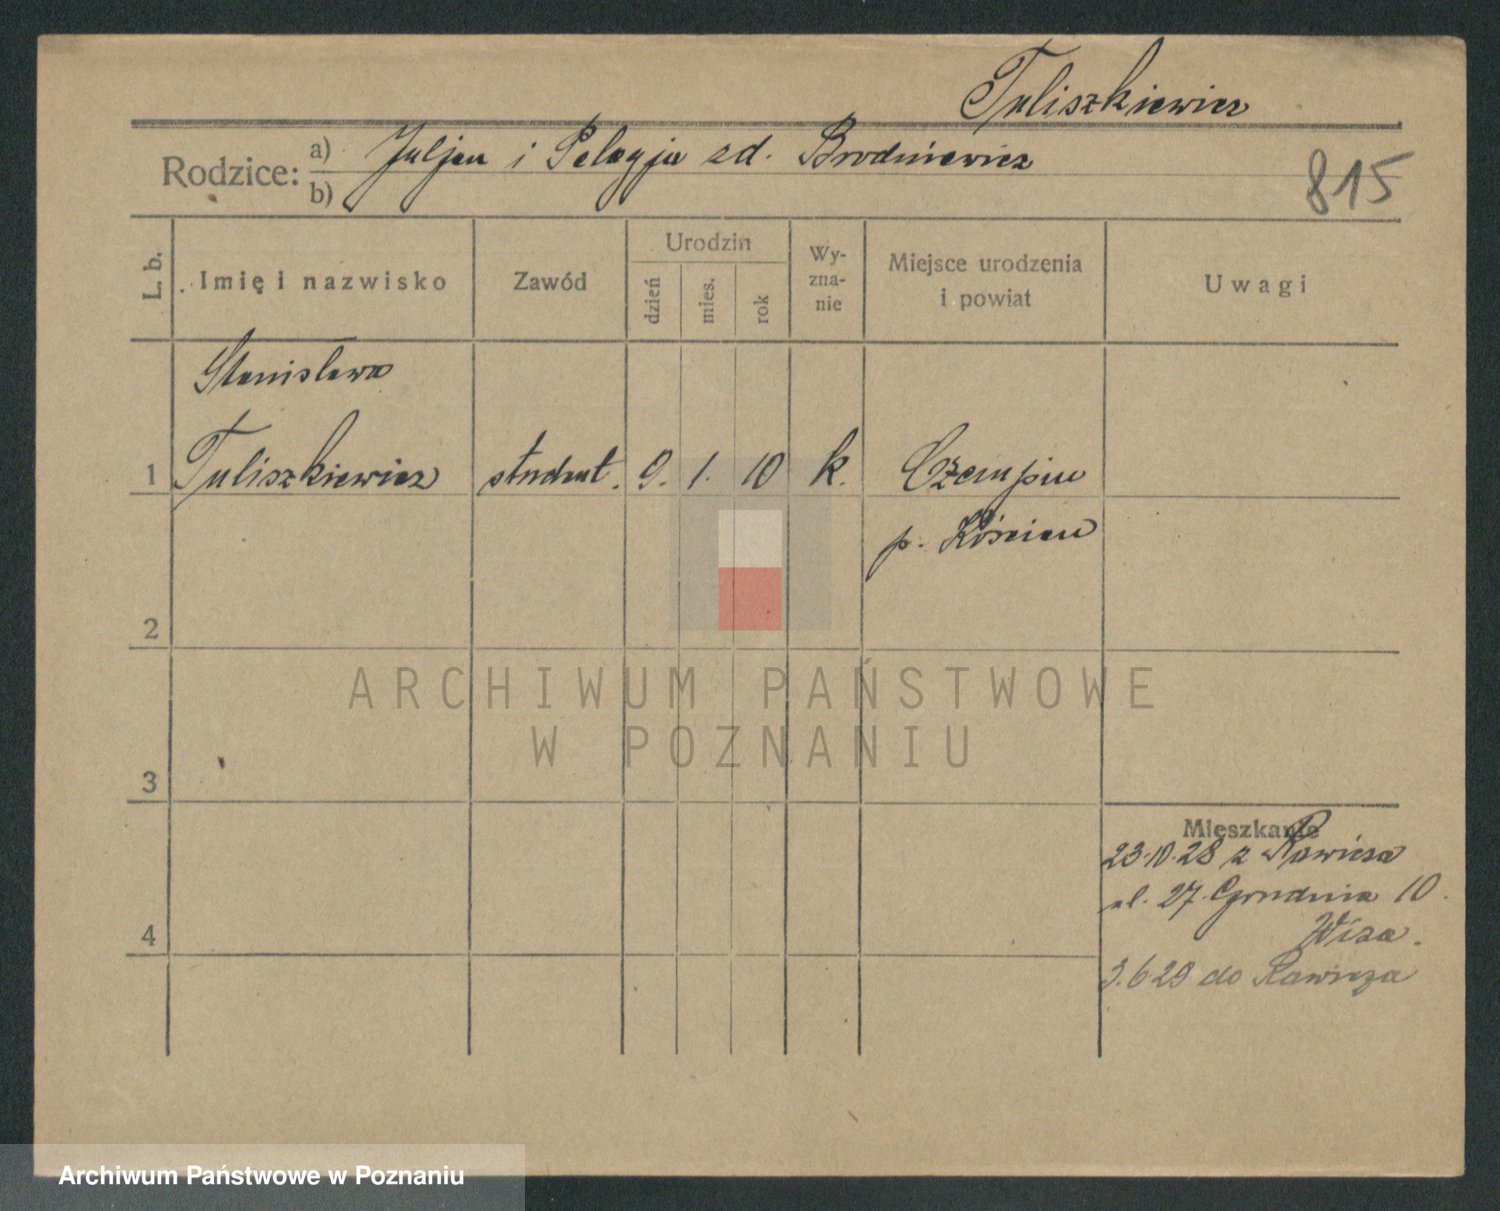 Tuliszkiewicz
Rodzice: a) Juljan i Pelagja zd. Brodniewicz
b)
815
L. b.
Imię i nazwisko
Zawód
Urodzin
dzień
mies.
rok
Wy-
zna-
nie
Miejsce urodzenia
i powiat
Uwagi
Stanisława
1 Tuliszkiewicz student. 9. 1. 10 k. Czempiń
p. Kościan
2
3
4
Mieszkanie
23.10.28 z Rawicza
ul. 27. Grudnia 10.
Wiza.
3.6 29 do Rawicza
ARCHIWUM PAŃSTWOWE
W POZNANIU
Archiwum Państwowe w Poznaniu